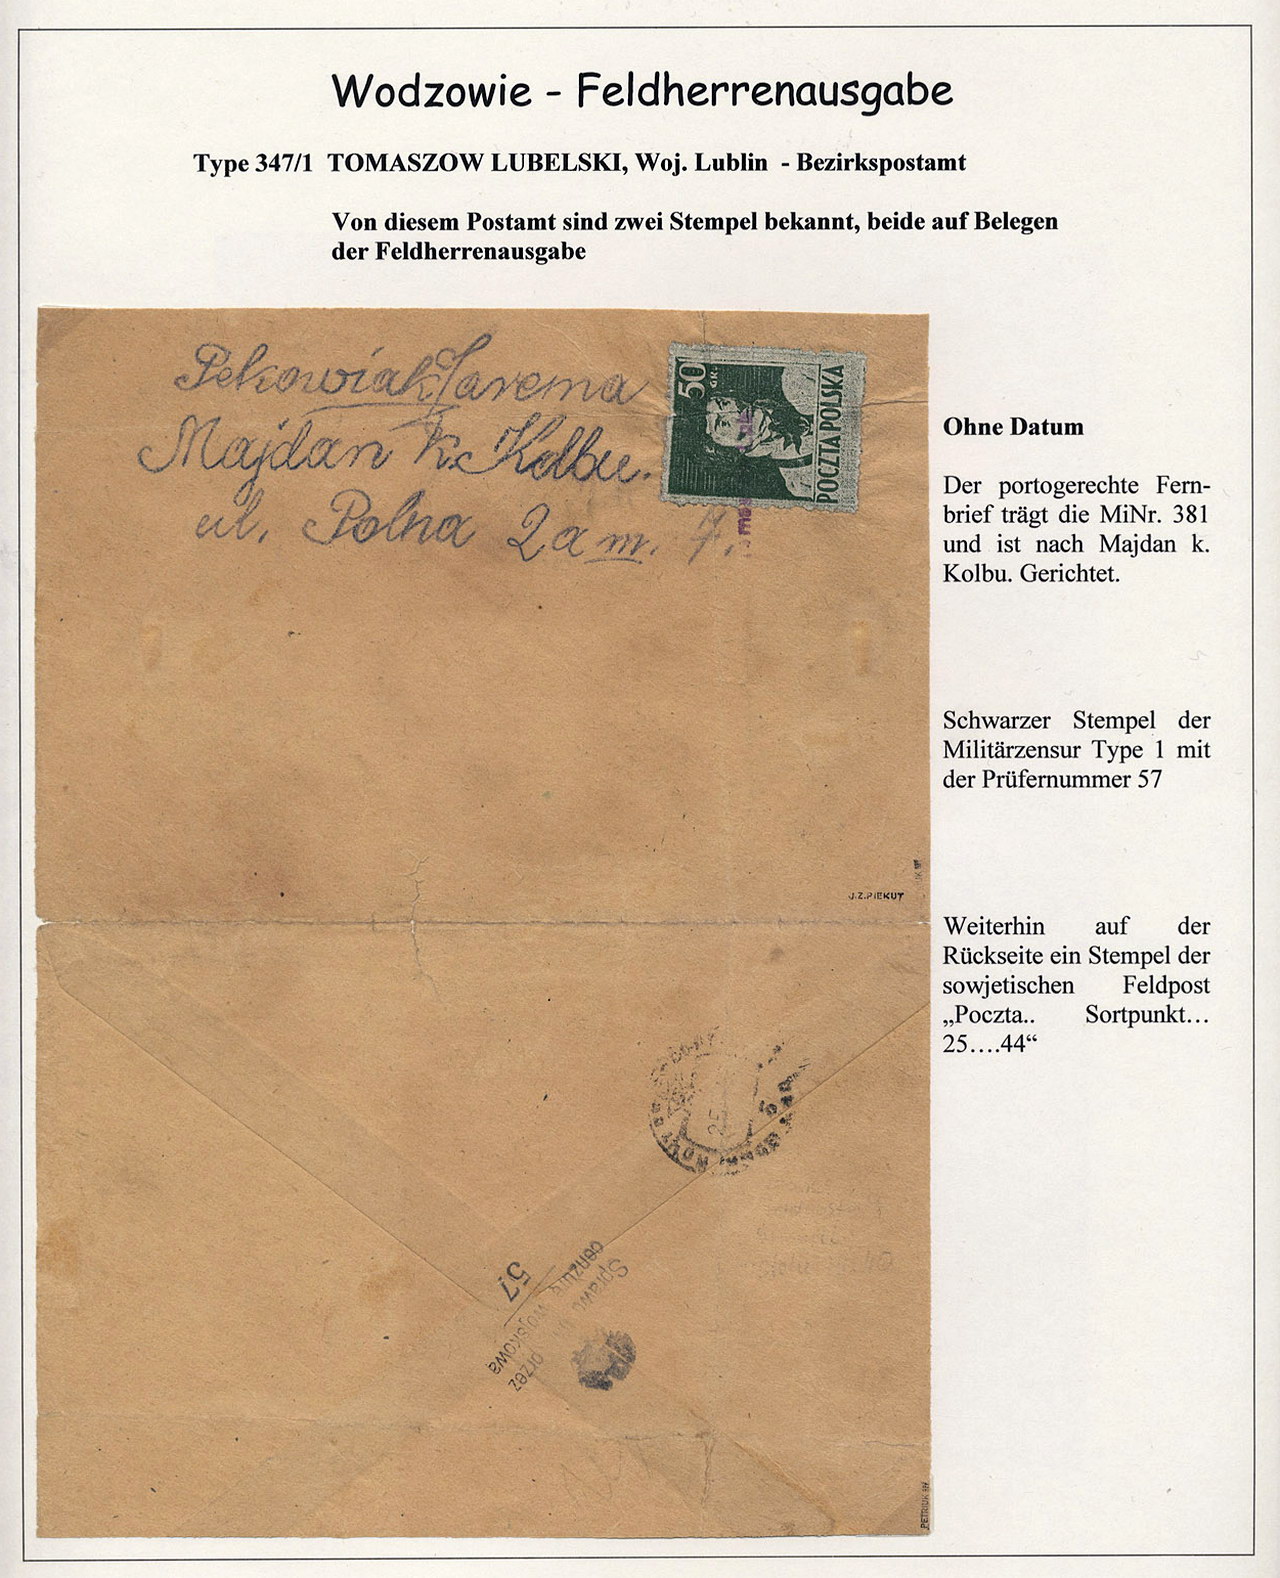 Wodzowie - Feldherrenausgabe
Type 347/1 TOMASZOW LUBELSKI, Woj. Lublin - Bezirkspostamt
Von diesem Postamt sind zwei Stempel bekannt, beide auf Belegen
der Feldherrenausgabe
Pekowiak Jarema
Majdan k. Kolbu.
ul. Polna 2a m. 7.
50 GR.
POCZTA POLSKA
Ohne Datum
Der portogerechte Fern-
brief trägt die MiNr. 381
und ist nach Majdan k.
Kolbu. Gerichtet.
Schwarzer Stempel der
Militärzensur Type 1 mit
der Prüfernummer 57
J.Z.PIEKUT
Weiterhin auf der
Rückseite ein Stempel der
sowjetischen Feldpost
„Poczta.. Sortpunkt…
25….44“
25
Sprawd przez
cenzura wojskowa
57